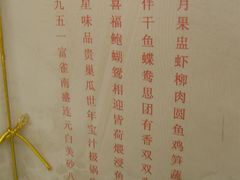 九星喜伴月
五味福干果
一品鲍鱼盅
富贵蝴蝶虾
雀巢鸳鸯柳
南瓜相思肉
盛世迎团圆
连年皆有鱼
元宝荷香鸡
白汁煨双笋
美极浸双蔬